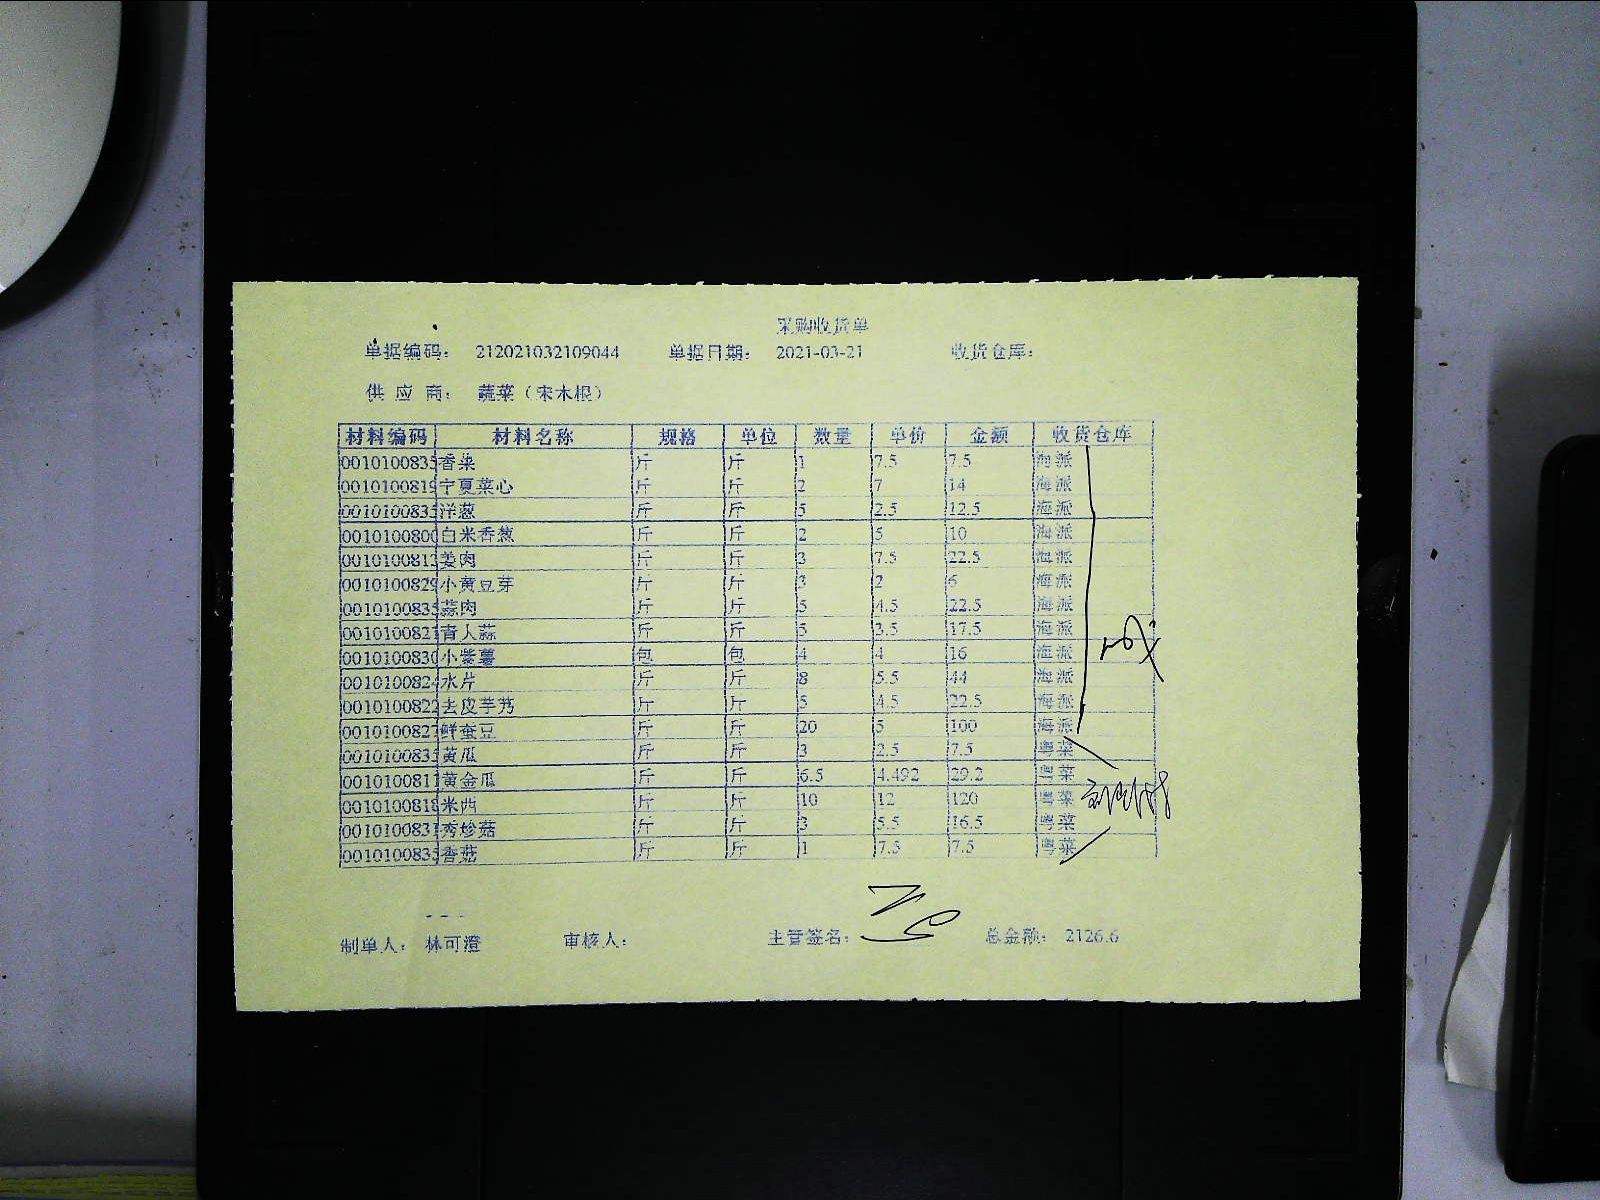 采购收货单
单据编码： 212021032109044 单据日期： 2021-03-21 收货仓库：
供 应 商： 蔬菜（宋木根）
材料编码 材料名称 规格 单位 数量 单价 金额 收货仓库
0010100835 香菜 斤 斤 1 7.5 7.5 海派
0010100819 宁夏菜心 斤 斤 2 7 14 海派
0010100835 洋葱 斤 斤 5 2.5 12.5 海派
0010100800 白米香葱 斤 斤 2 5 10 海派
0010100812 姜肉 斤 斤 3 7.5 22.5 海派
0010100829 小黄豆芽 斤 斤 3 2 6 海派
0010100835 蒜肉 斤 斤 5 4.5 22.5 海派
0010100821 青大蒜 斤 斤 5 3.5 17.5 海派
0010100830 小紫薯 包 包 4 4 16 海派
0010100824 水片 斤 斤 8 5.5 44 海派
0010100822 去皮芋艿 斤 斤 5 4.5 22.5 海派
0010100827 鲜蚕豆 斤 斤 20 5 100 海派
0010100835 黄瓜 斤 斤 3 2.5 7.5 粤菜
0010100811 黄金瓜 斤 斤 6.5 4.492 29.2 粤菜
0010100818 米西 斤 斤 10 12 120 粤菜
0010100831 秀珍菇 斤 斤 3 5.5 16.5 粤菜
0010100835 香菇 斤 斤 1 7.5 7.5 粤菜
制单人： 林可澄 审核人： 主管签名： 总金额： 2126.6